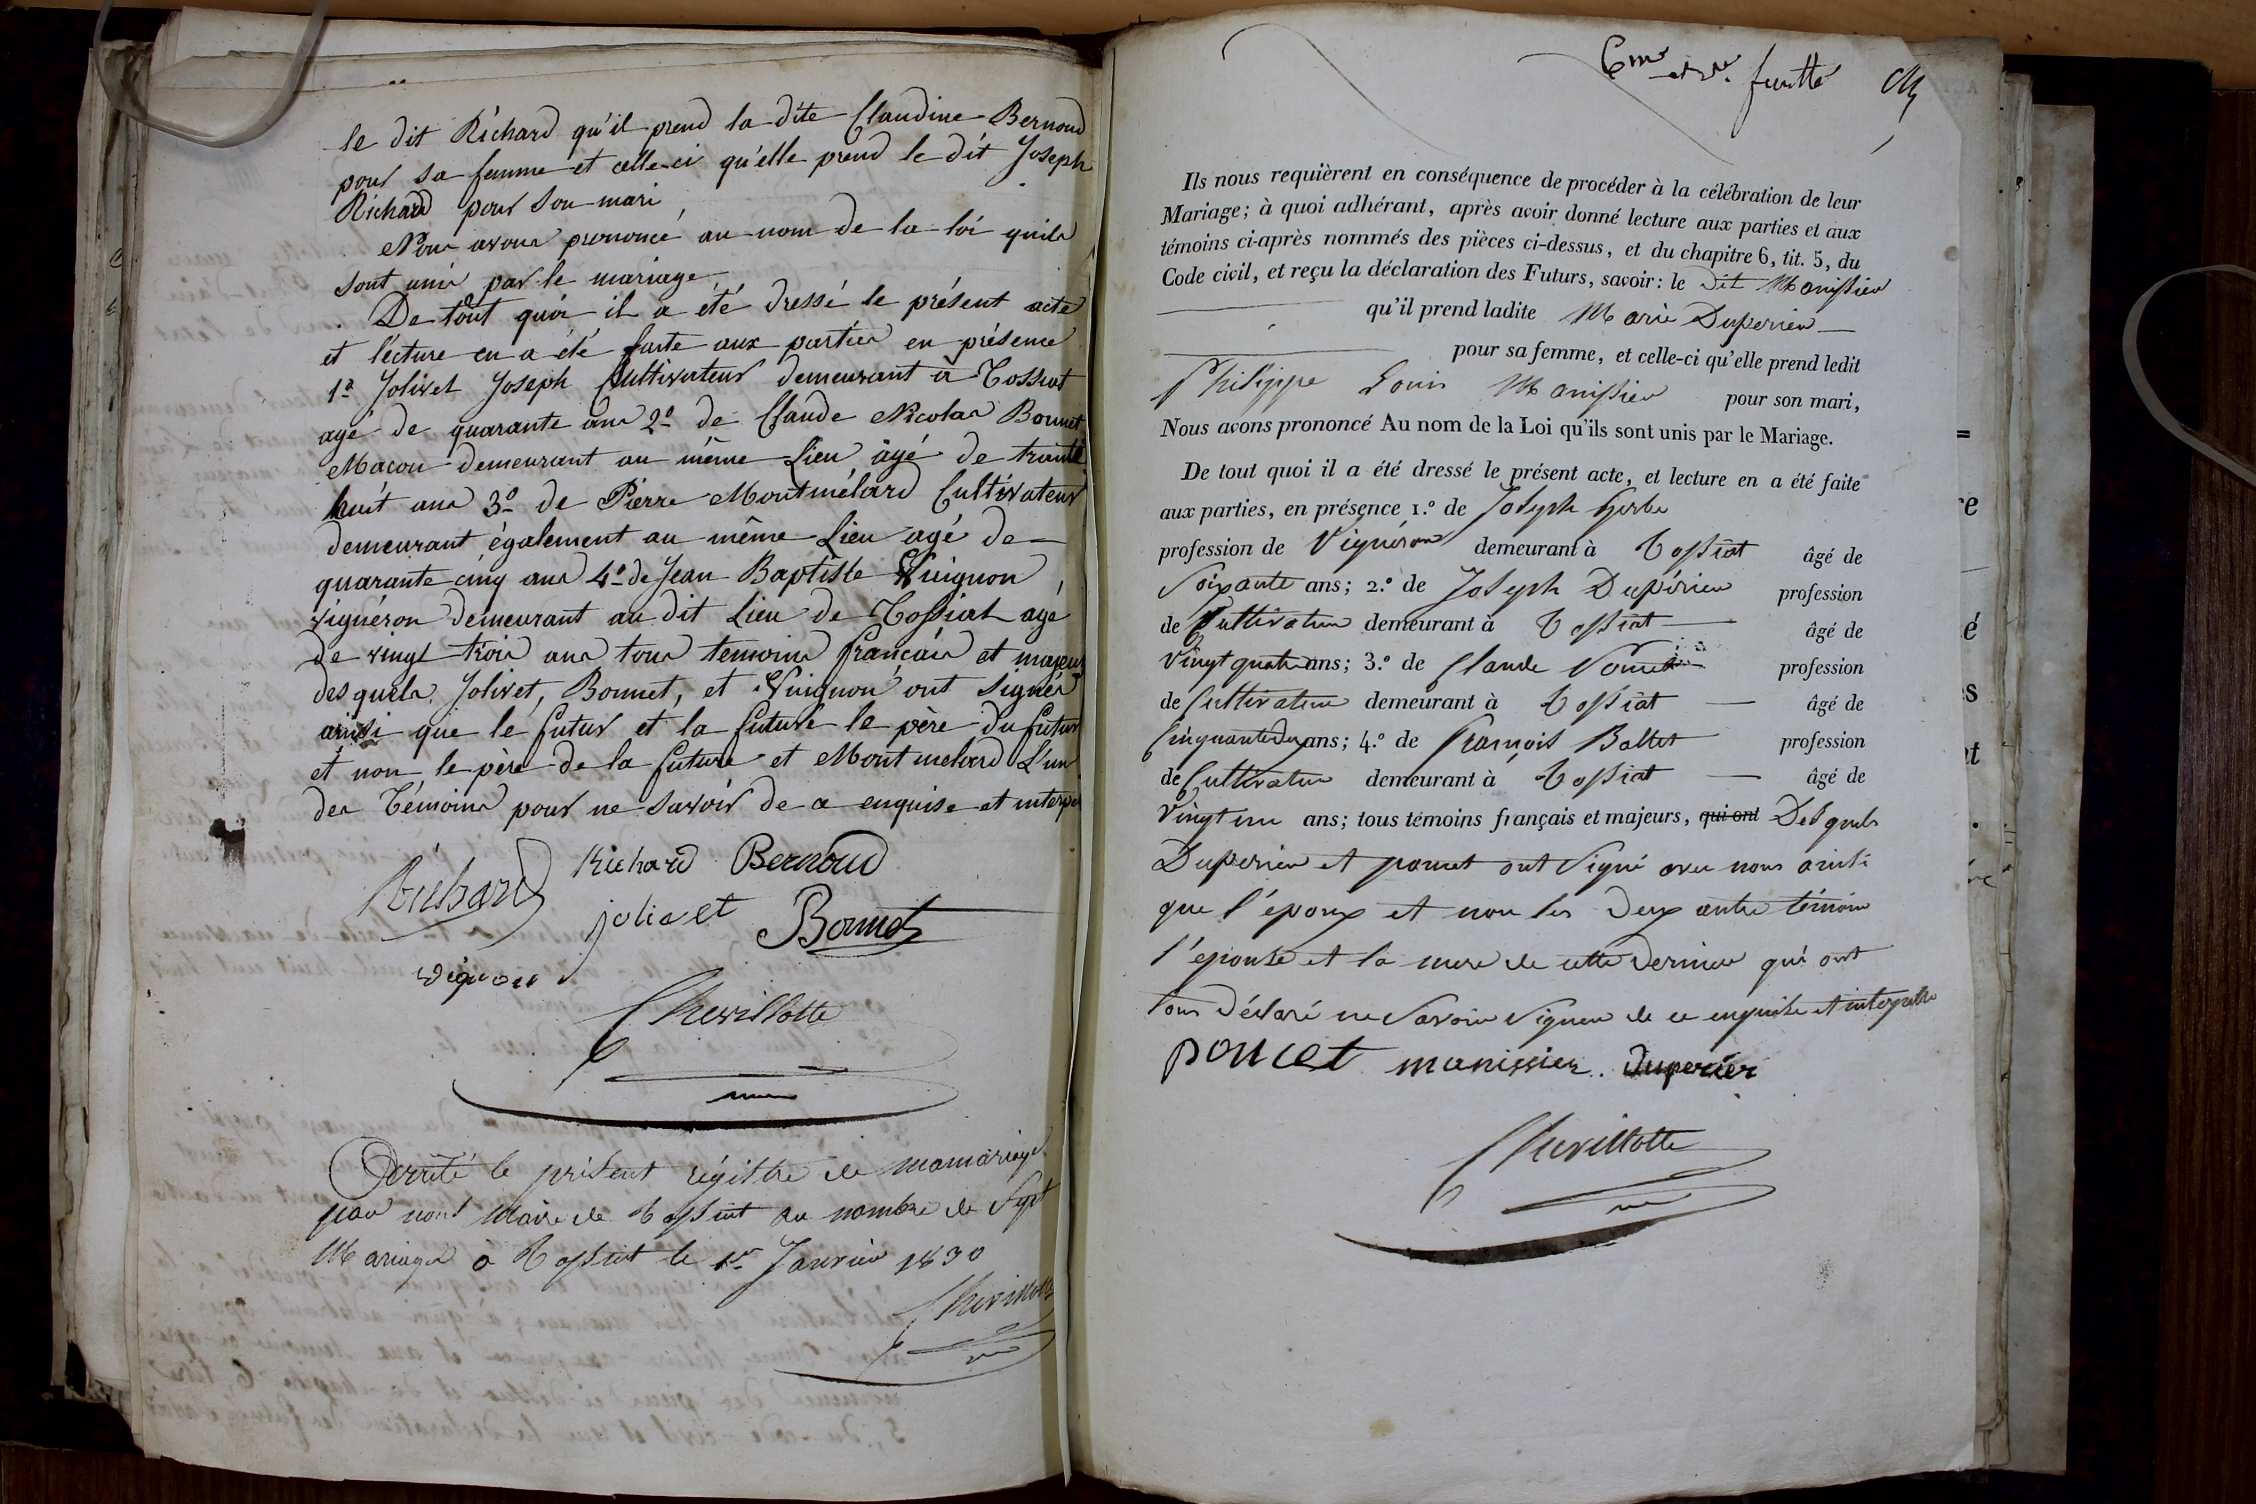 le dit Richard qu'il prend la dite Claudine Bernoud
pour sa femme et celle-ci qu'elle prend le dit Joseph
Richard pour son mari
Nous avons prononcé au nom de la loi quils
sont unis par le mariage
De tout quoi il a été dressé le présent acte
et lécture en a été faite aux parties en présence
1º Jolivet Joseph Cultivateur demeurant à Tossiat
agé de quarante ans 2º de Claude Nicolas Bonnet
Macon demeurant au même Lieu âgé de trante
huit ans 3º de Pierre Montmélard Cultivateur
demeurant également au même Lieu agé de
quarante cinq ans 4º de Jean Baptiste Vuignon
vignéron demeurant au dit Lieu de Tossiat agé
de vingt trois ans tous temoins français et majeurs
des quels Jolivet, Bonnet, et Vuignon ont signés
ainsi que le futur et la future le père du futur
et non le père de la future et Montmelard L'un
des Témoins pour ne savoir de a enquise et interpe
Richard Richard Bernoud
jolivet Bonnet
vignon
Chevillotte
Arrêté le présent régistre de mamariage
par nous Maire de Tossiat au nombre de Sept
Mariages à Tossiat le 1er Janvier 1830
Chevillotte
6me et dre feuillé
Ils nous requièrent en conséquence de procéder à la célébration de leur
Mariage; à quoi adhérant, après avoir donné lecture aux parties et aux
témoins ci-après nommés des pièces ci-dessus, et du chapitre 6, tit. 5, du
Code civil, et reçu la déclaration des Futurs, savoir: le dit Manissier
qu'il prend ladite Marie Duperier
pour sa femme, et celle-ci qu'elle prend ledit
Philippe Louis Manissier pour son mari,
Nous avons prononcé Au nom de la Loi qu'ils sont unis par le Mariage.
De tout quoi il a été dressé le présent acte, et lecture en a été faite
aux parties, en présence 1.º de Joseph
profession de Vignéron demeurant à Tossiat âgé de
Soixante ans; 2.º de Joseph Dupérier profession
de Cultivateur demeurant à Tossiat âgé de
Vingt quatre ans; 3.º de Claude Poncet profession
de Cultivateur demeurant à Tossiat âgé de
Cinquante deux ans; 4.º de François Ballet profession
de Cultivateur demeurant à Tossiat âgé de
Vingt un ans; tous témoins français et majeurs, qui ont Desquels
Duperier et poncet ont Signé avec nous ainsi
que l'époux et non les deux autre témoins
l'épouse et la mere de cette derniere qui ont
tous déclaré ne Savoir Signer de ce enquise et interpellé
poncet manissier. duperier
Chevillotte